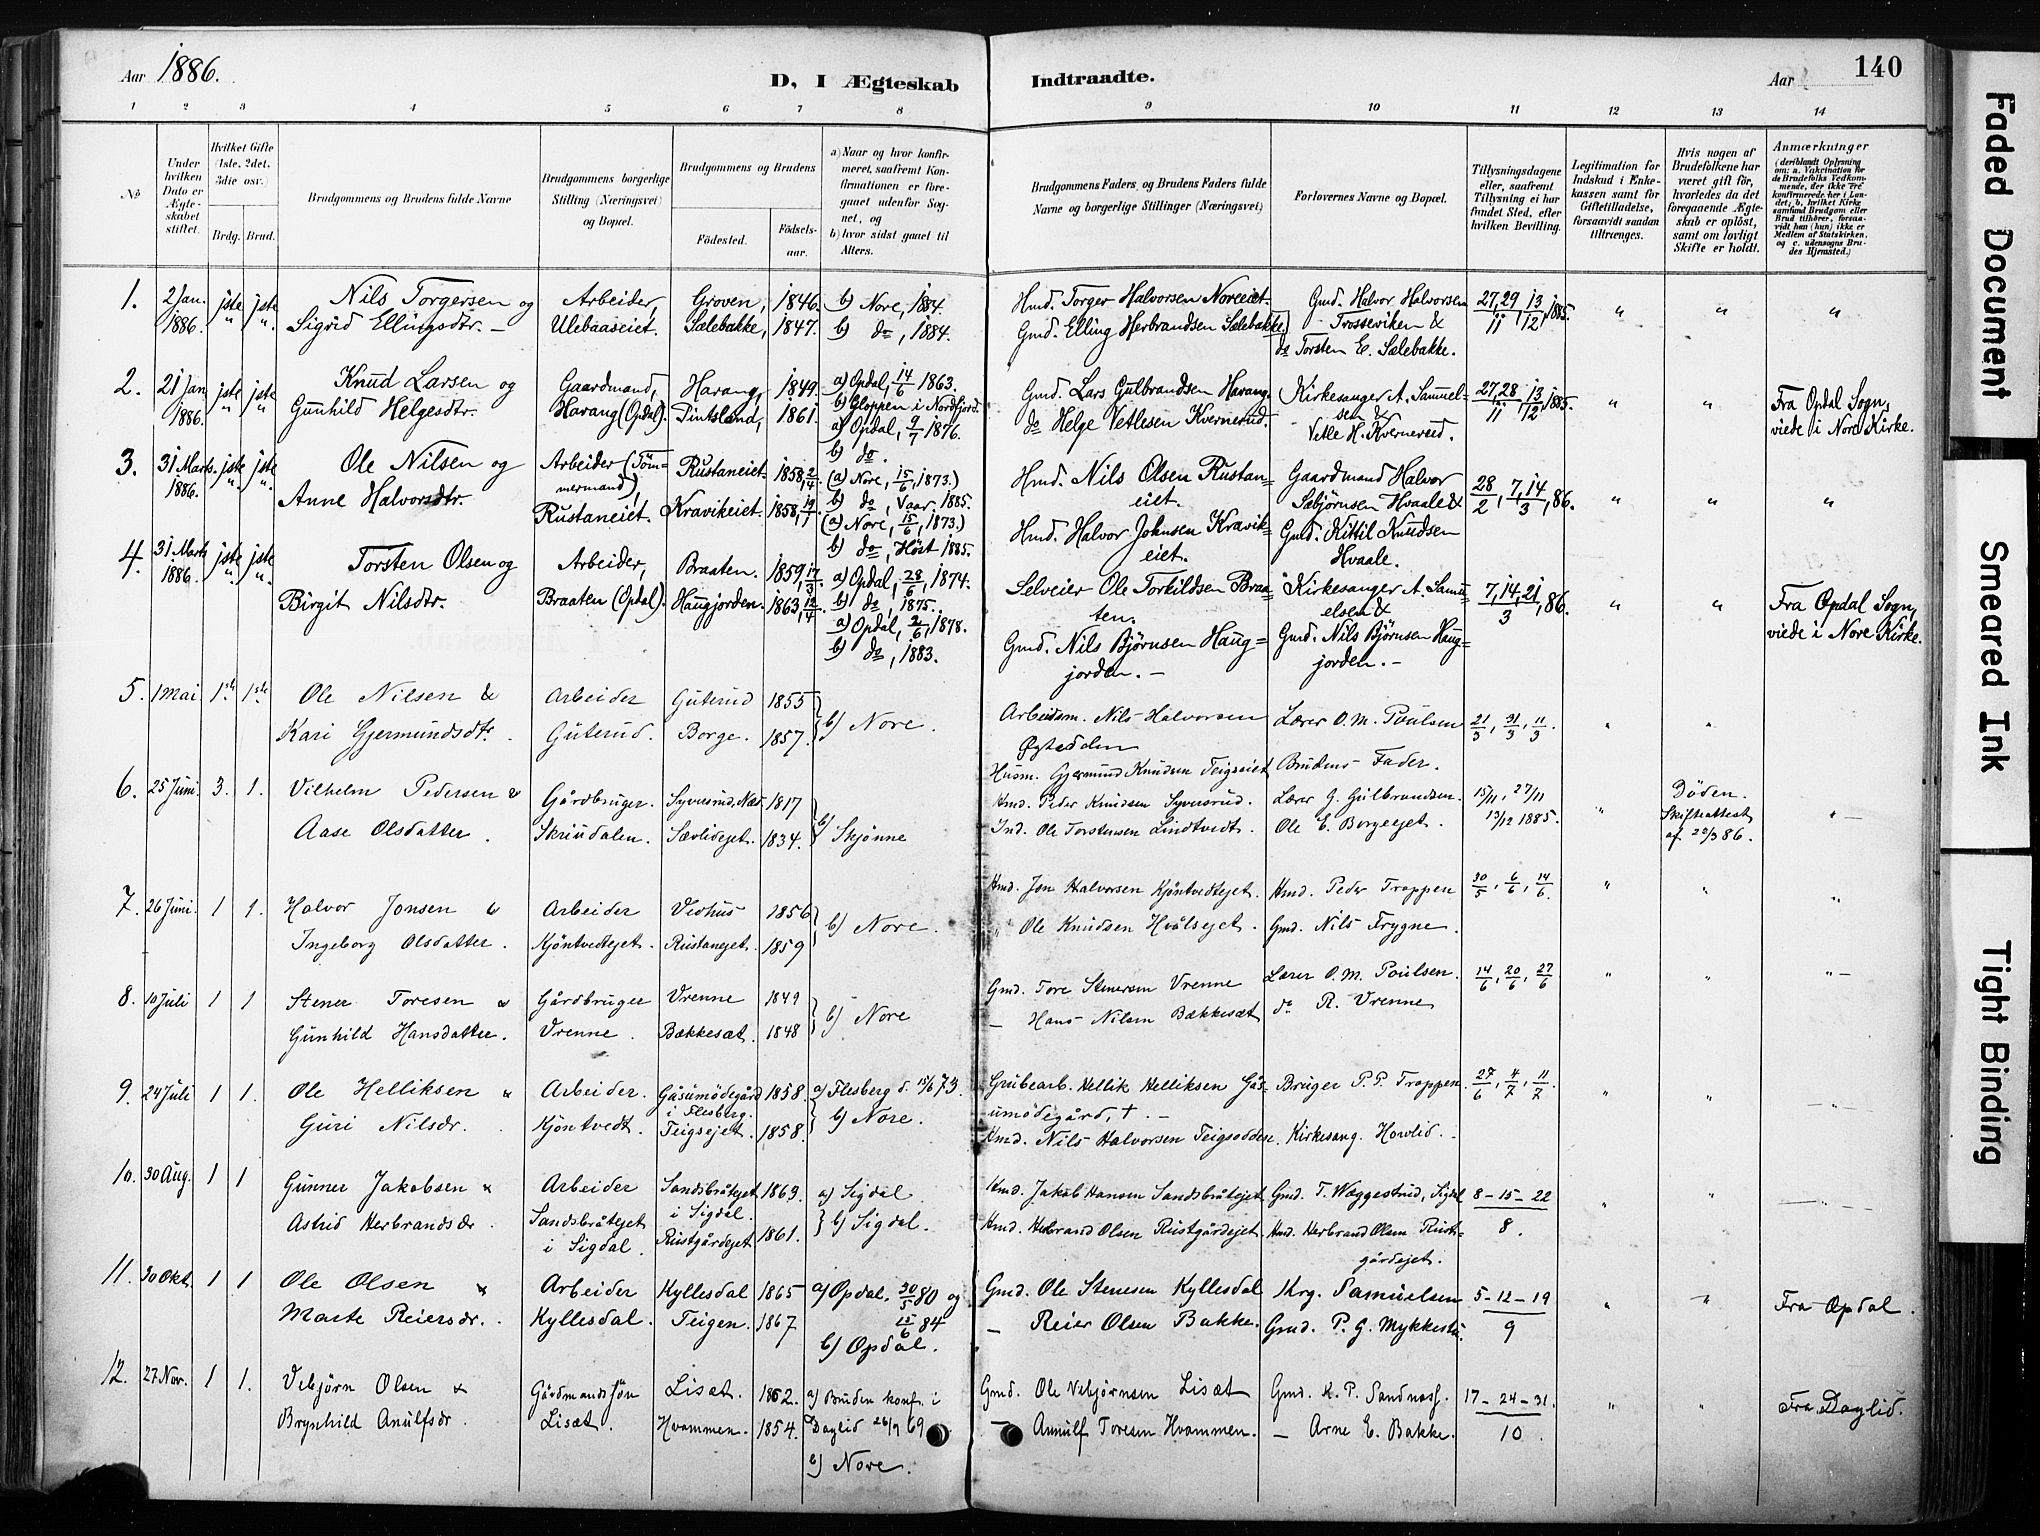 Aar 1886.
D, I Ægteskab Indtraadte.
Aar
140
1 2 3 4 5 6 7 8 9 10 11 12 13 14
No
Under hvilken Dato er Ægteskabet stiftet.
Hvilket Gifte (1ste, 2det, 3die osv.)
Brdg. Brud.
Brudgommens og Brudens fulde Navne
Brudgommens borgerlige Stilling (Næringsvei) og Bopæl.
Brudgommens og Brudens
Födested.
Födselsaar.
a) Naar og hvor konfirmeret, saafremt Konfirmationen er foregaaet udenfor Sognet, og
b) hvor sidst gaaet til Alters.
Brudgommens Faders, og Brudens Faders fulde Navne og borgerlige Stillinger (Næringsvei)
Forlovernes Navne og Bopæl.
Tillysningsdagene eller, saafremt Tillysning ei har fundet Sted, efter hvilken Bevilling.
Legitimation for Indskud i Enkekassen samt for Giftetilladelse, forsaavidt saadan tiltrænges.
Hvis nogen af Brudefolkene har været gift før, hvorledes da det foregaaende Ægteskab er oplöst, samt om lovligt Skifte er holdt.
Anmærkninger (deriblandt Oplysning om: a. Vakcination for de Brudefolks Vedkommende, der ikke ere konfirmerede her i Landet; b. hvilket Kirkesamfund Brudgom eller Brud tilhörer, forsaavidt han (hun) ikke er Medlem af Statskirken, og c. udensogns Brudes Hjemsted.)
1. 2 Jan. 1886. jste jste Nils Torgersen og Arbeider, Groven, 1846. b) Nore, 1884. Hmd. Torger Halvorsen Noreeiet. Gmd. Halvor Halvorsen 27,29/11 13/12, 1885. " " "
" " Sigrid Ellingsdtr. – Ulebaaseiet. Sælebakke, 1847. b) do, 1884. Gmd. Elling Herbrandsen Sælebakke. Trosseviken &
do Torsten E. Sælebakke.
2. 21 Jan 1886. jste jste Knud Larsen og Gaardmand, Harang, 1849. a) Opdal, 14/6 1863. Gmd. Lars Gulbrandsen Harang. Kirkesanger A. Samuel- 27,28/11 13/12, 1885. " " Fra Opdal Sogn,
" " Gunhild Helgesdtr. Harang (Opdal). Tintsland, 1861. b) Gloppen i Nordfjord. do Helge Vetlesen Kvernerud. sen & viede i Nore Kirke.
a) Opdal, 9/7 1876. Vetle H. Kvernerud.
b) do.
3. 31 Marts 1886. jste jste Ole Nilsen og Arbeider (Töm- Rustaneiet. 1858, 2/4. (a) Nore, 15/6, 1873.) Hmd. Nils Olsen Rustan- Gaardmand Halvor 28/2, 7,14/3, 86. " " "
" " Anne Halvorsdtr. mermand), b) do, Vaar. 1885. eiet. Sæbjörnsen Hvaale &
Rustaneiet. Kravikeiet. 1858, 19/1 (a) Nore, 15/6, 1873.) Hmd. Halvor Johnsen Kravik- Gmd. Kittil Knudsen
b) do, Höst 1885. eiet. Hvaale.
4. 31 Marts 1886. jste jste Torsten Olsen og Arbeider, Braaten. 1859, 17/3. a) Opdal, 28/6, 1874. Selveier Ole Torkildsen Braa- Kirkesanger A. Samu- 7,14,21/3, 86. " " Fra Opdal Sogn,
" " Birgit Nilsdtr. Braaten (Opdal). Haugjorden. 1863, 12/4 b) do, 1875. ten. elsen & viede i Nore Kirke.
a) Opdal, 2/6, 1878. Gmd. Nils Björnsen Haug- Gmd. Nils Björnsen Haug-
b) do, 1883. jorden. – jorden. –
5. 1 Mai 1ste 1ste Ole Nilsen & Arbeider Guterud 1855 b) Nore. Arbeidsm. Nils Halvorsen Lærer O. M. Poulsen 21/3, 31/3, 11/3. " "
Kari Gjermundsdtr. Guterud. Borge. 1857. Brudens Fader.
Husm. Gjermund Knudsen Teigseiet
6. 25 Juni. 3. 1. Vilhelm Pedersen & Gårdbruger. Syversrud, Næs 1817 b) Skjønne Kmd. Peder Knudsen Syversrud. Lærer G. Gulbrandsen. 15/11, 27/11 " Döden. "
Aase Olsdatter. Skriudalen. Sævlidejet. 1834. Ind. Ole Torstensen Lindtvedt. Ole E. Borgeejet. 13/12 1885. Skifteattest af 20/3 86.
7. 26 Juni. 1 1. Halvor Jonsen & Arbeider Vidhus 1856 b) Nore. Hmd. Jon Halvorsen Kjöntvedtejet. Hmd. Peder Trappen 30/5, 6/6, 14/6. " " "
Ingeborg Olsdatter. Kjöntvedtejet. Rustanejet. 1859 " Ole Knudsen Hvålsejet. Gmd. Nils Frygne.
8. 10 Juli 1 1 Stener Toresen & Gårdbruger Vrenne 1849 b) Nore Gmd. Tore Stenersen Vrenne Lærer O. M. Poulsen. 14/6, 20/6, 27/6 " " "
Gunhild Hansdatter. Vrenne. Bækkesæt. 1848 – Hans Nilsen Bækkesæt do R. Vrenne
9. 24 Juli 1 1. Ole Helliksen & Arbeider. Gåsumödegård i Flesberg. 1858. a) Flesberg d. 15/6 73. Grubearb. Hellik Helliksen Gås- Bruger P. P. Trappen. 27/6, 4/7, 11/7 " "
Guri Nilsdr. Kjöntvedt. Teigsejet. 1858. b) Nore. umödegård, †. –
Hmd. Nils Halvorsen Teigsodden. Kirkesang. Howlid.
10. 30 Aug. 1 1 Gunner Jakobsen & Arbeider Sandsbråtejet i Sigdal. 1863. a) Sigdal Hmd. Jakob Hansen Sandsbråtejet Gmd. T. Wæggestrud, Sigdal 8 – 15 – 22 " "
Astrid Herbrandsdr. Sandsbråtejet i Sigdal. Rustgårdejet 1861. b) Sigdal. Hmd. Herbrand Olsen Rustgårdejet. Hmd. Herbrand Olsen Rust- 8.
gårdejet.
11. 30 Okt. 1 1 Ole Olsen & Arbeider Kyllesdal 1865 a) Opdal. 30/5 80 og Gmd. Ole Stenesen Kyllesdal Krg. Samuelsen 5 – 12 – 19 " " Fra Opdal.
Marte Reiersdr. Kyllesdal. Teigen. 1867 15/6 84 – Reier Olsen Bakke. Gmd. P. G. Mykkestu. 9
b) Opdal.
12. 27 Nov. 1 1. Vebjörn Olsen & Gårdmandssön Lisæt. 1862. a) Bruden konf. i Gmd. Ole Vebjörnsen Lisæt Gmd. K. P. Sandnæs. 17 – 24 – 31. " " Fra Daglid.
Brynhild Anulfsdr. Lisæt. Hvammen. 1854. Daglid 26/9 69 – Anulf Toresen Hvammen. – Arne E. Bakke. 10.
b) Nore.
Faded Document
Smeared Ink
Tight Binding